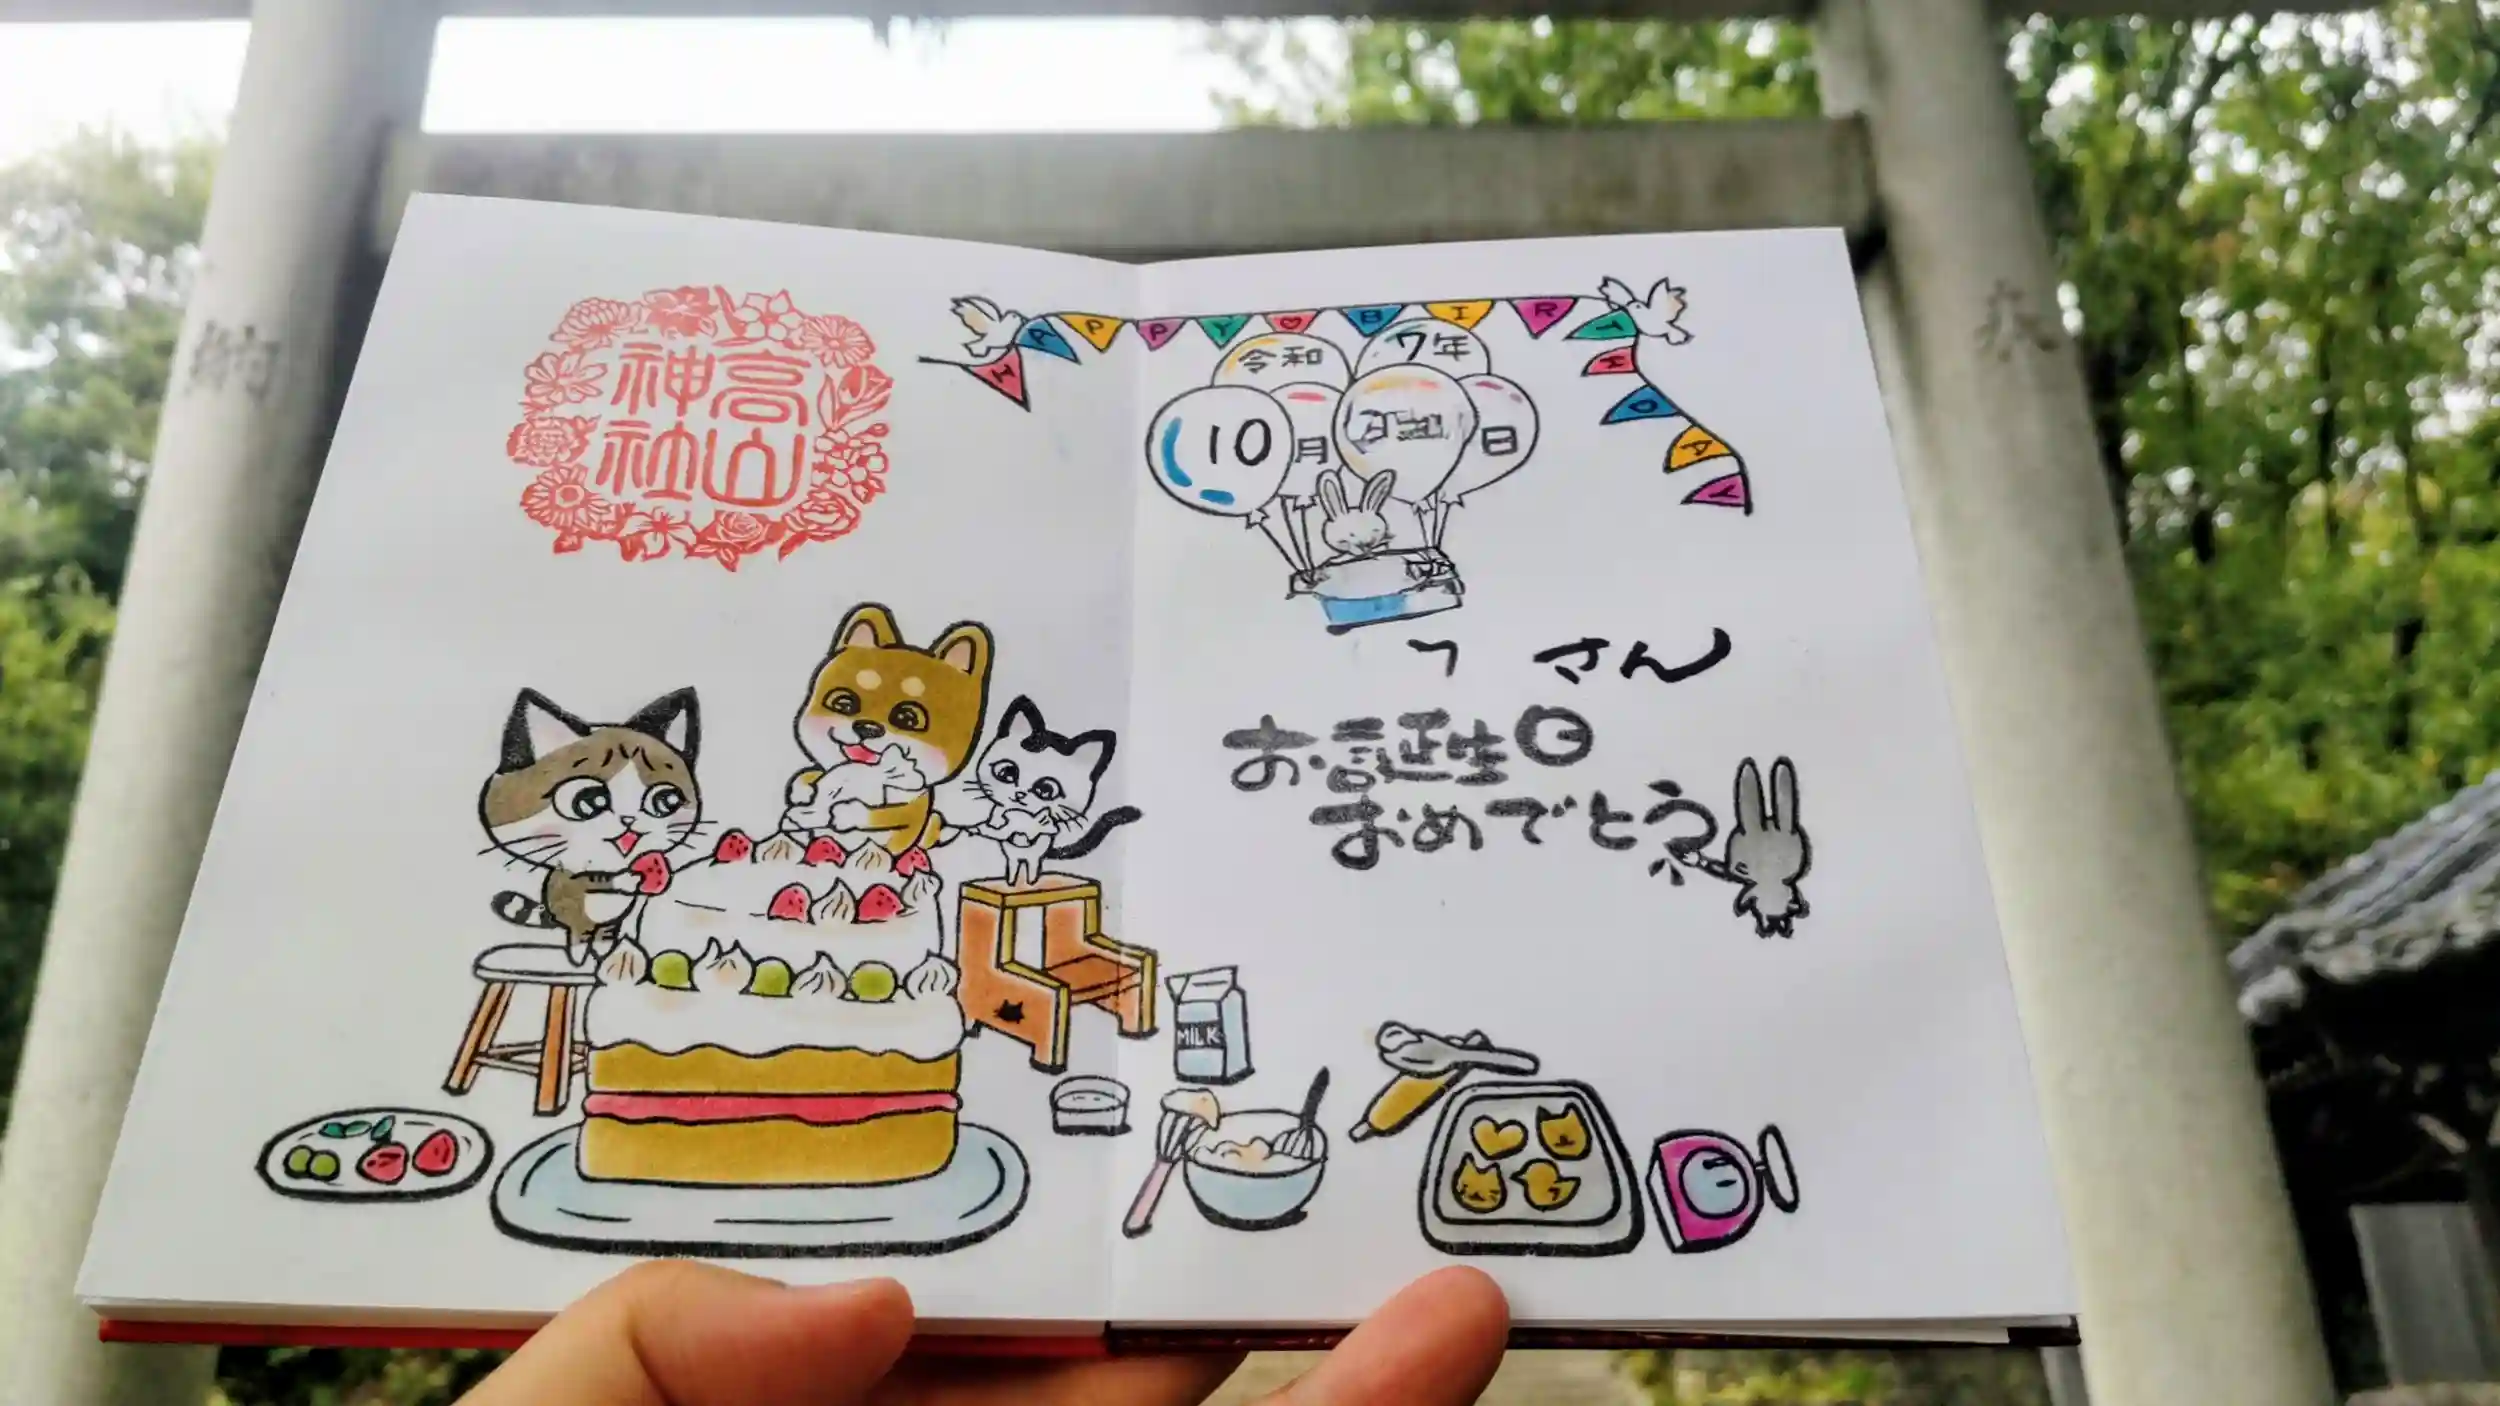 高山
神社
HAPPY♡BIRTHDAY
令和 7年
10月 日
さん
お誕生日
おめでとう
MILK
納